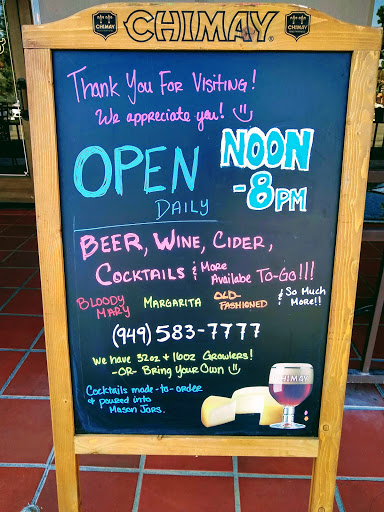 CHIMAY
Thank You For Visiting!
We appreciate you!
OPEN
DAILY
NOON
-8PM
BEER, WINE, CIDER,
COCKTAILS & More
Availabe To-Go!!!
BLOODY MARY
MARGARITA
OLD-FASHIONED
& So Much More!!
(949) 583-7777
We have 32oz + 16oz Growlers!
-OR- Bring Your Own
Cocktails made-to-order
& poured into
Mason Jars.
CHIMAY
CHIMAY